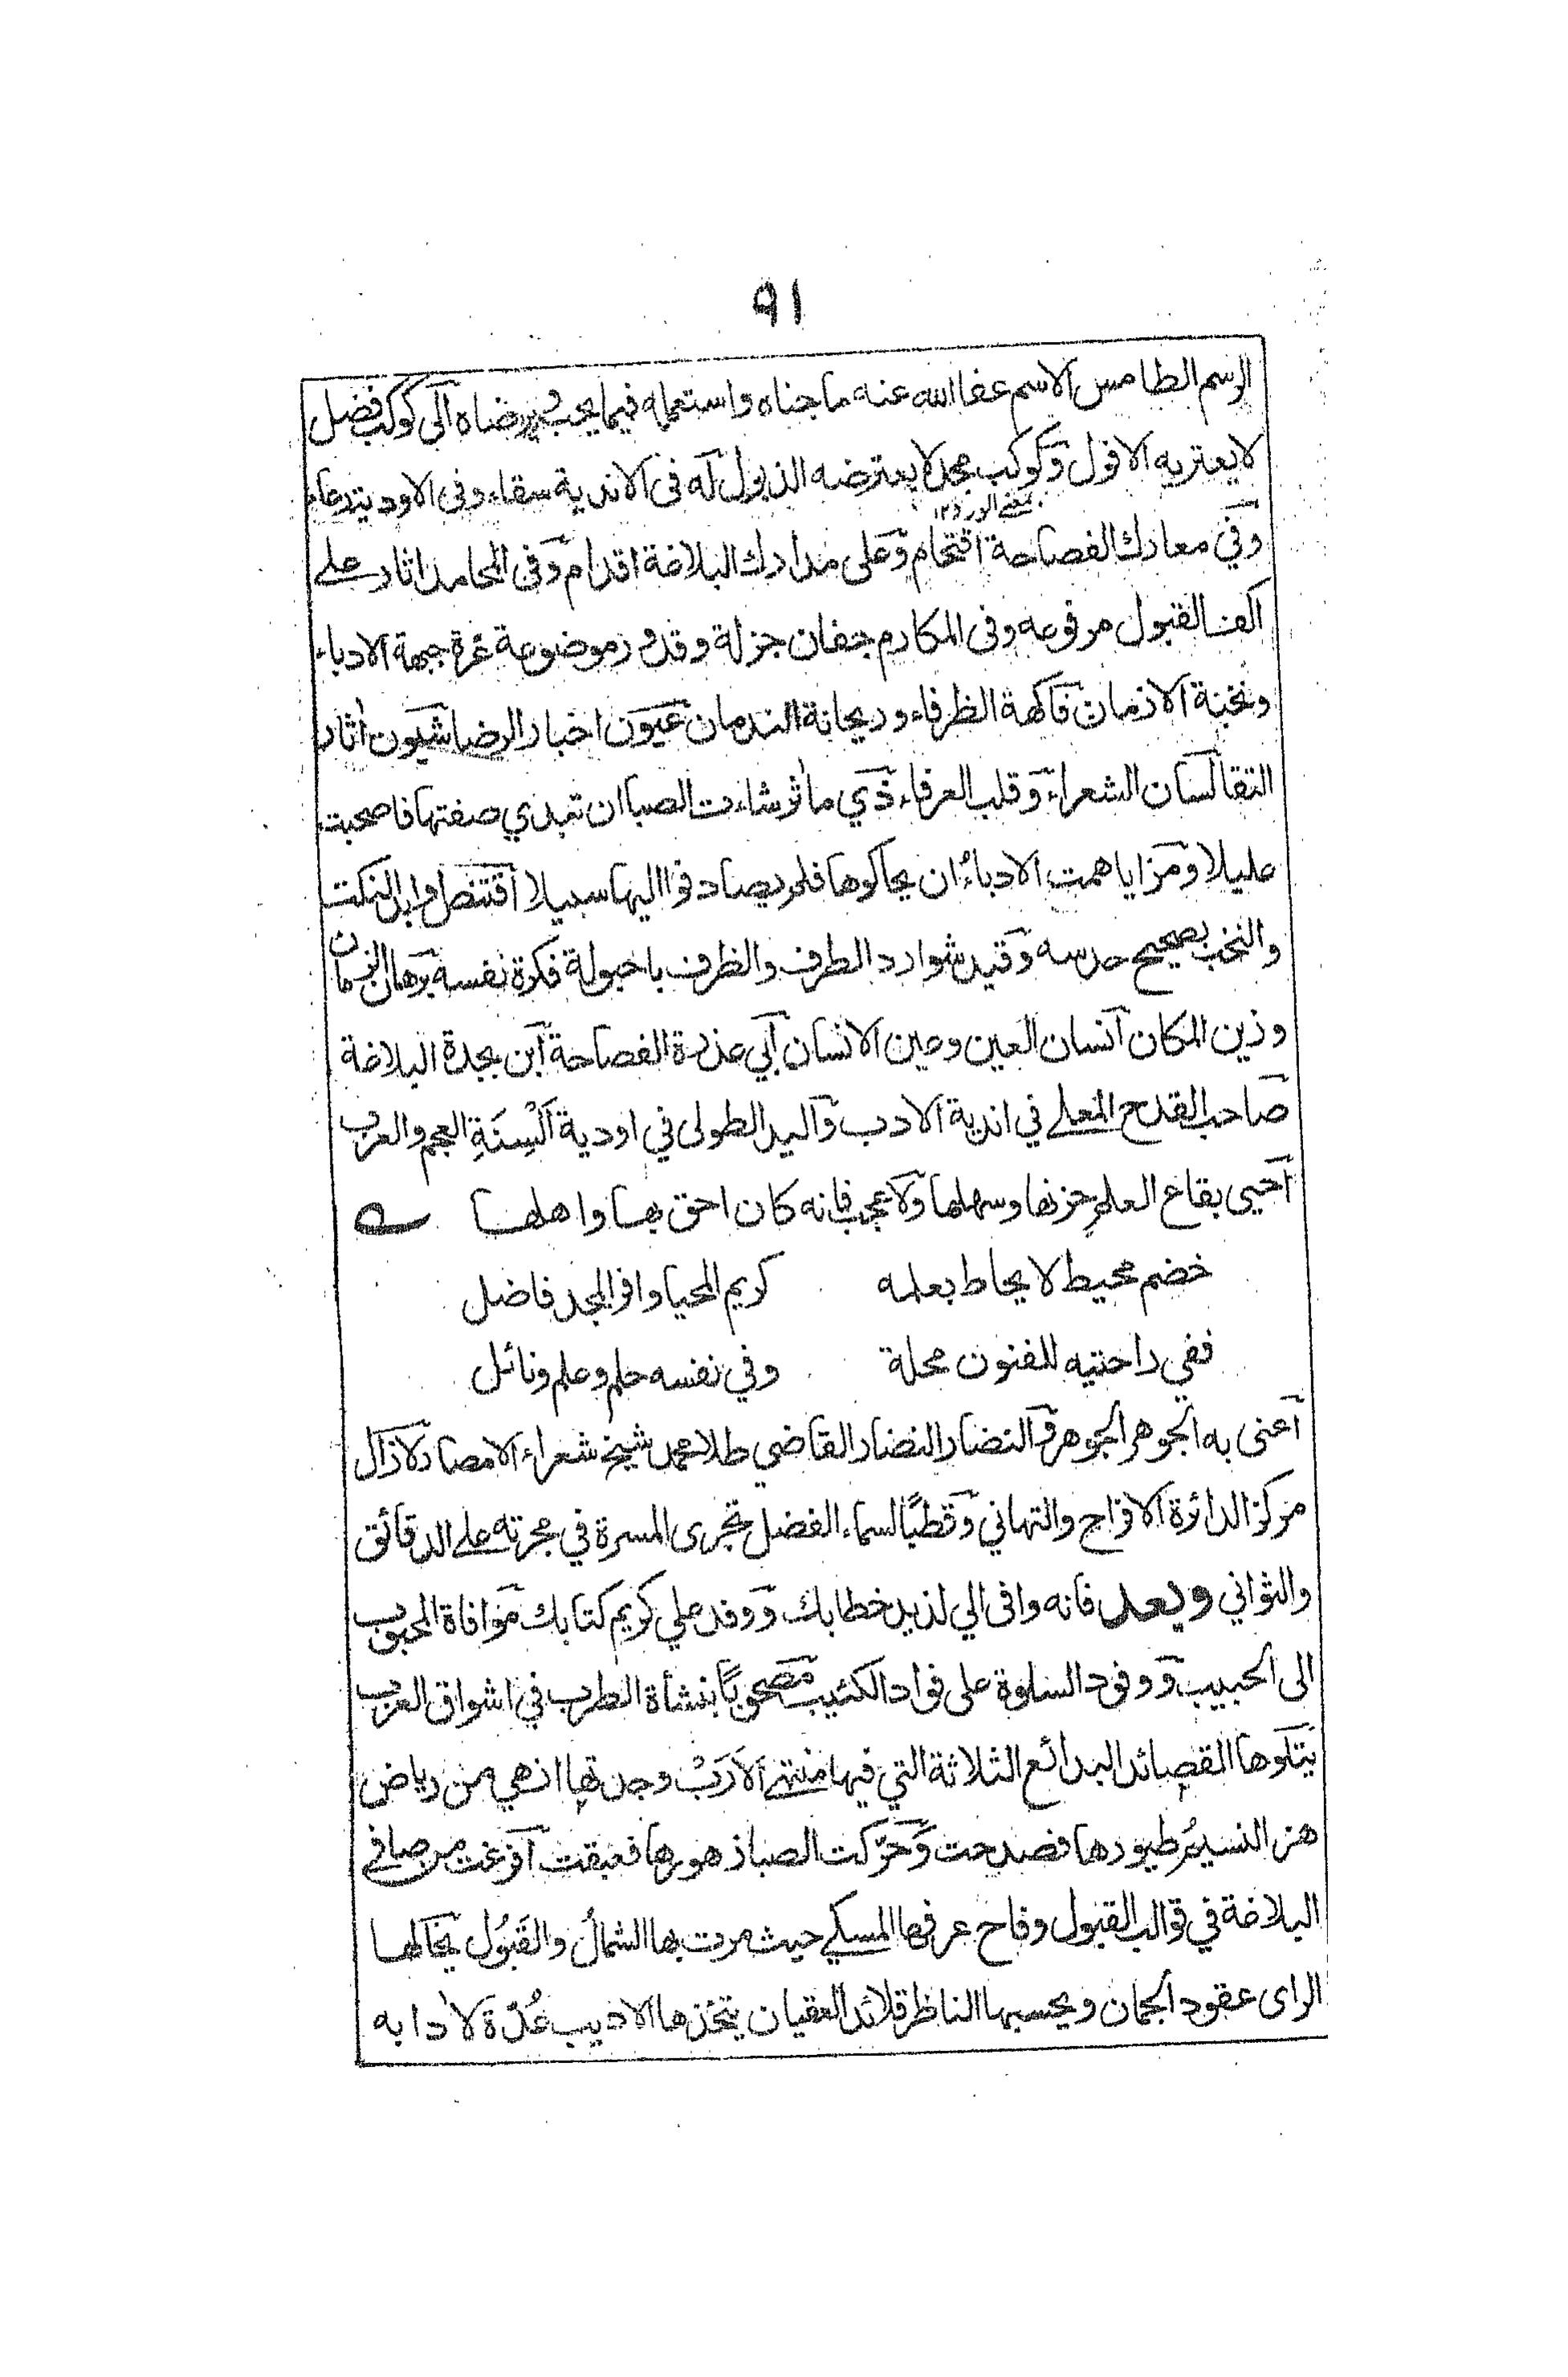 ٩١
الرسم الطامس الاسم عفا الله عنه ما جناه واستعمله فيما يحب ويرضاه الى كوكب فضل
لا يعتريه الافول وكوكب مجد لا يعترضه الذبول له فى الاندية سقاء وفى الاودية رعاء
وفي معارك الفصاحة اقتحام وعلى مدارك البلاغة اقدام وفى المحامد اثار على
اكف القبول مرفوعه وفى المكارم جفان جزلة وقدور موضوعة غرة جبهة الادباء
ونخبة الازمان فاكهة الظرفاء وريحانة الندمان عيون اخبار الرضا شيون اٰثار
التقا لسان الشعراء وقلب العرفاء ذي ماٰثر شاءت الصبا ان تبدي صفتها فاصبحت
عليلا ومزايا همت الادباءُ ان يحاكوها فلم يصادفوا اليها سبيلا اقتنص اوابد النكت
والنخب بصحيح حدسه وقيد شوارد الطرف والظرف باحبولة فكرة نفسه برهان الزمان
وزين المكان انسان العين وعين الانسان ابي عذرة الفصاحة ابن بجدة البلاغة
صاحب القدح المعلى في اندية الادب واليد الطولى في اودية اَلْسِنَةِ العجم والعرب
احيى بقاع العلم حزنها وسهلها ولا عجب فانه كان احق بها واهلها
خضم محيط لا يحاط بعلمه كريم المحيا وافر المجد فاضل
ففي راحتيه للفنون محلة وفي نفسه حلم وعلم ونائل
اعنى به الجوهر الجوهر والنضار النضار القاضي طلا محمد شيخ شعراء الامصار لا زال
مركز الدائرة الافراح والتهاني وقطبًا لسماء الفضل تجرى المسرة في مجرته على الدقائق
والثواني وبعد فانه وافى الي لذيذ خطابك ووفد علي كريم كتابك موافاة المحبوب
الى الحبيب ووفود السلوة على فواد الكئيب مصحوبًا بنشأة الطرب في اشواق العرب
يتلوها القصائد البدائع الثلاثة التي فيها منتهى الاَرَبْ وجدتها ازهي من رياض
هز النسيمُ طيورها فصدحت وحَرّكت الصبا زهورها فعبقت افرغت من صافي
البلاغة في قوالب القبول وفاح عرفها المسكي حيث مرت بها الشمالُ والقَبُول يخالها
الراى عقود الجمان ويحسبها الناظر قلائد العقيان يتخذها الاديب عُدّة لاٰدابه